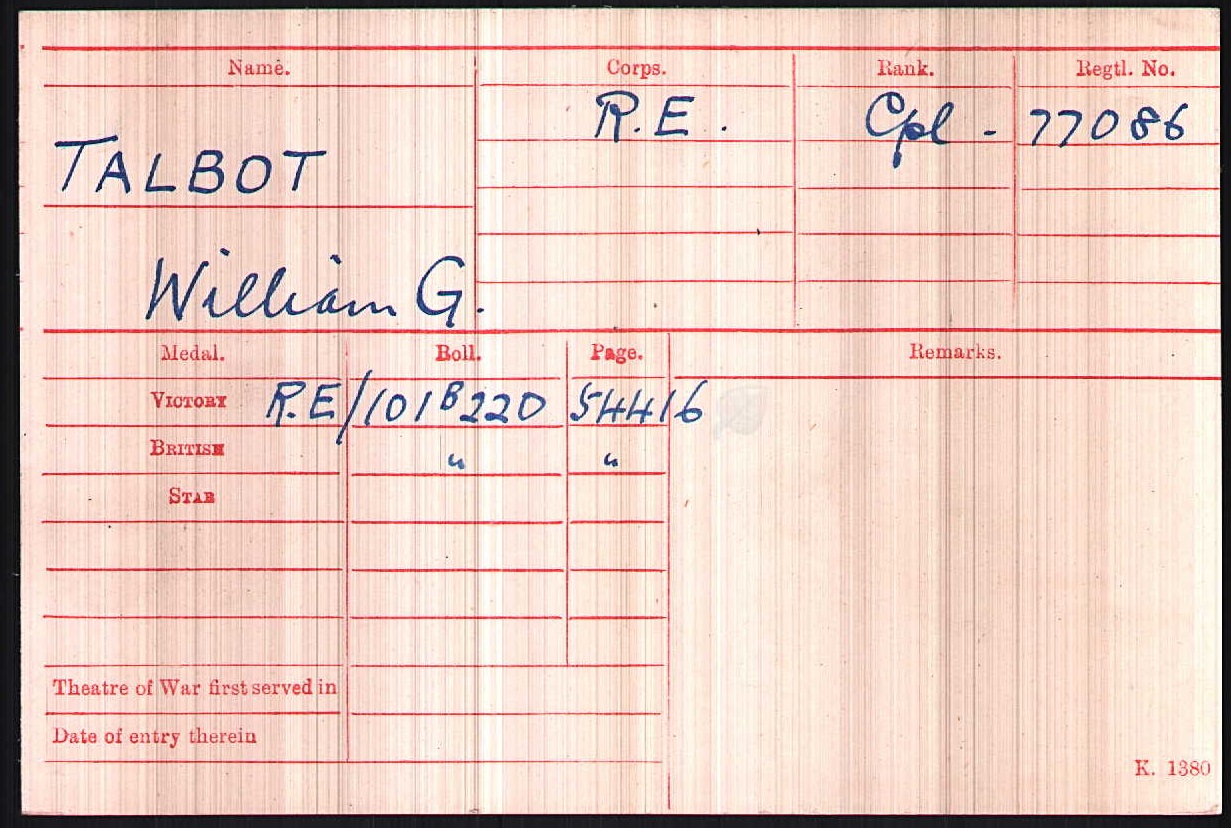 Name. Corps. Rank. Regtl. No.
R.E. Cpl - 77086
TALBOT
William G.
Medal. Roll. Page. Remarks.
VICTORY R.E/101B220 54416
BRITISH " "
STAR
Theatre of War first served in
Date of entry therein
K. 1380